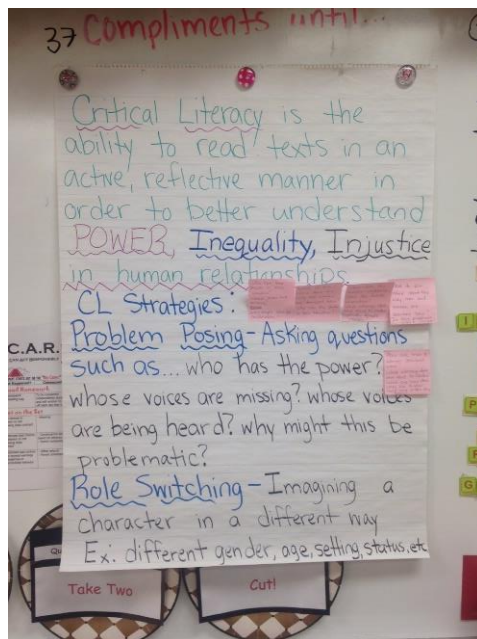 37 Compliments until...
Critical Literacy is the
ability to read texts in an
active, reflective manner in
order to better understand
POWER, Inequality, Injustice
in human relationships.
CL Strategies:
Problem Posing - Asking questions
such as... who has the power?
whose voices are missing? whose voices
are being heard? why might this be
problematic?
Role Switching - Imagining a
character in a different way
Ex: different gender, age, setting, status, etc
C.A.R.
Take Two
Cut!
I
P
G